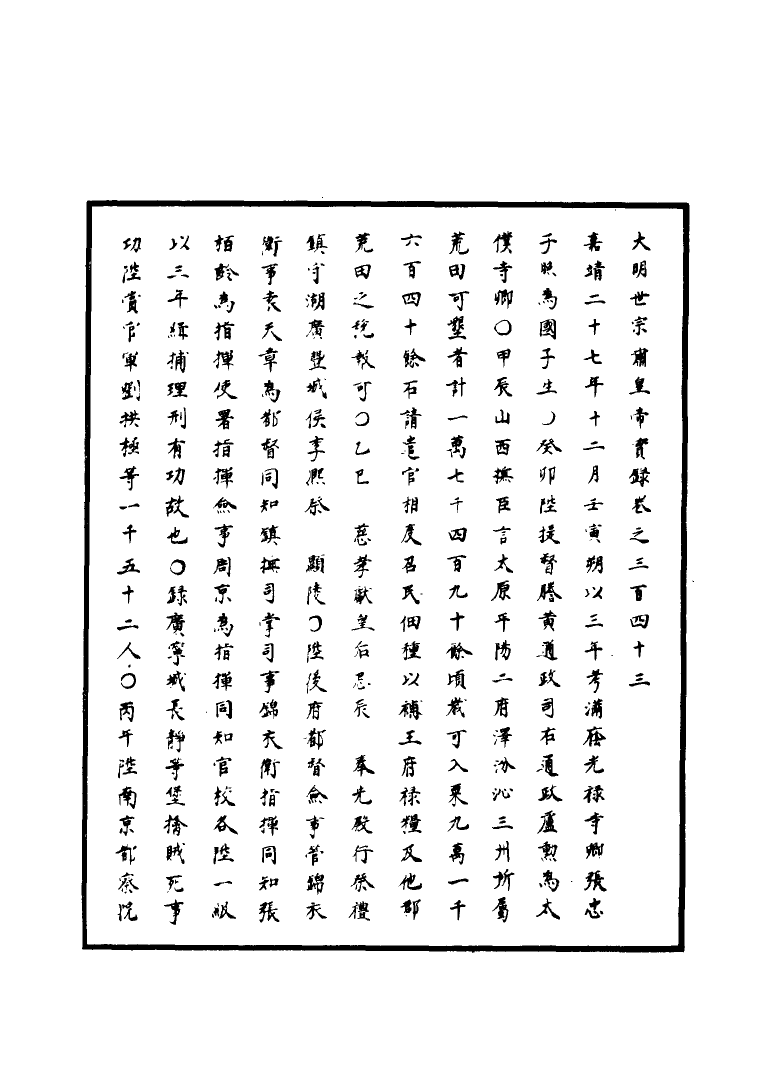 大明世宗肅皇帝實錄卷之三百四十三
嘉靖二十七年十二月壬寅朔以三年考滿廕光祿寺卿張忠
子照為國子生○癸卯陞提督謄黃通政司右通政盧勲為太
僕寺卿○甲辰山西撫臣言太原平陽二府澤汾沁三州所屬
荒田可墾者計一萬七千四百九十餘頃歲可入粟九萬一千
六百四十餘石請遣官相度召民佃種以補王府祿糧及他郡
荒田之稅報可○乙巳 慈孝獻皇后忌辰 奉先殿行祭禮
鎮守湖廣豐城侯李熙祭 顯陵○陞後府都督僉事管錦衣
衛事袁天章為都督同知鎮撫司掌司事錦衣衛指揮同知張
栢齡為指揮使署指揮僉事周京為指揮同知官校各陞一級
以三年緝捕理刑有功故也○錄廣寧城長靜等堡擒賊死事
功陞賞官軍劉拱極等一千五十二人○丙午陞南京都察院